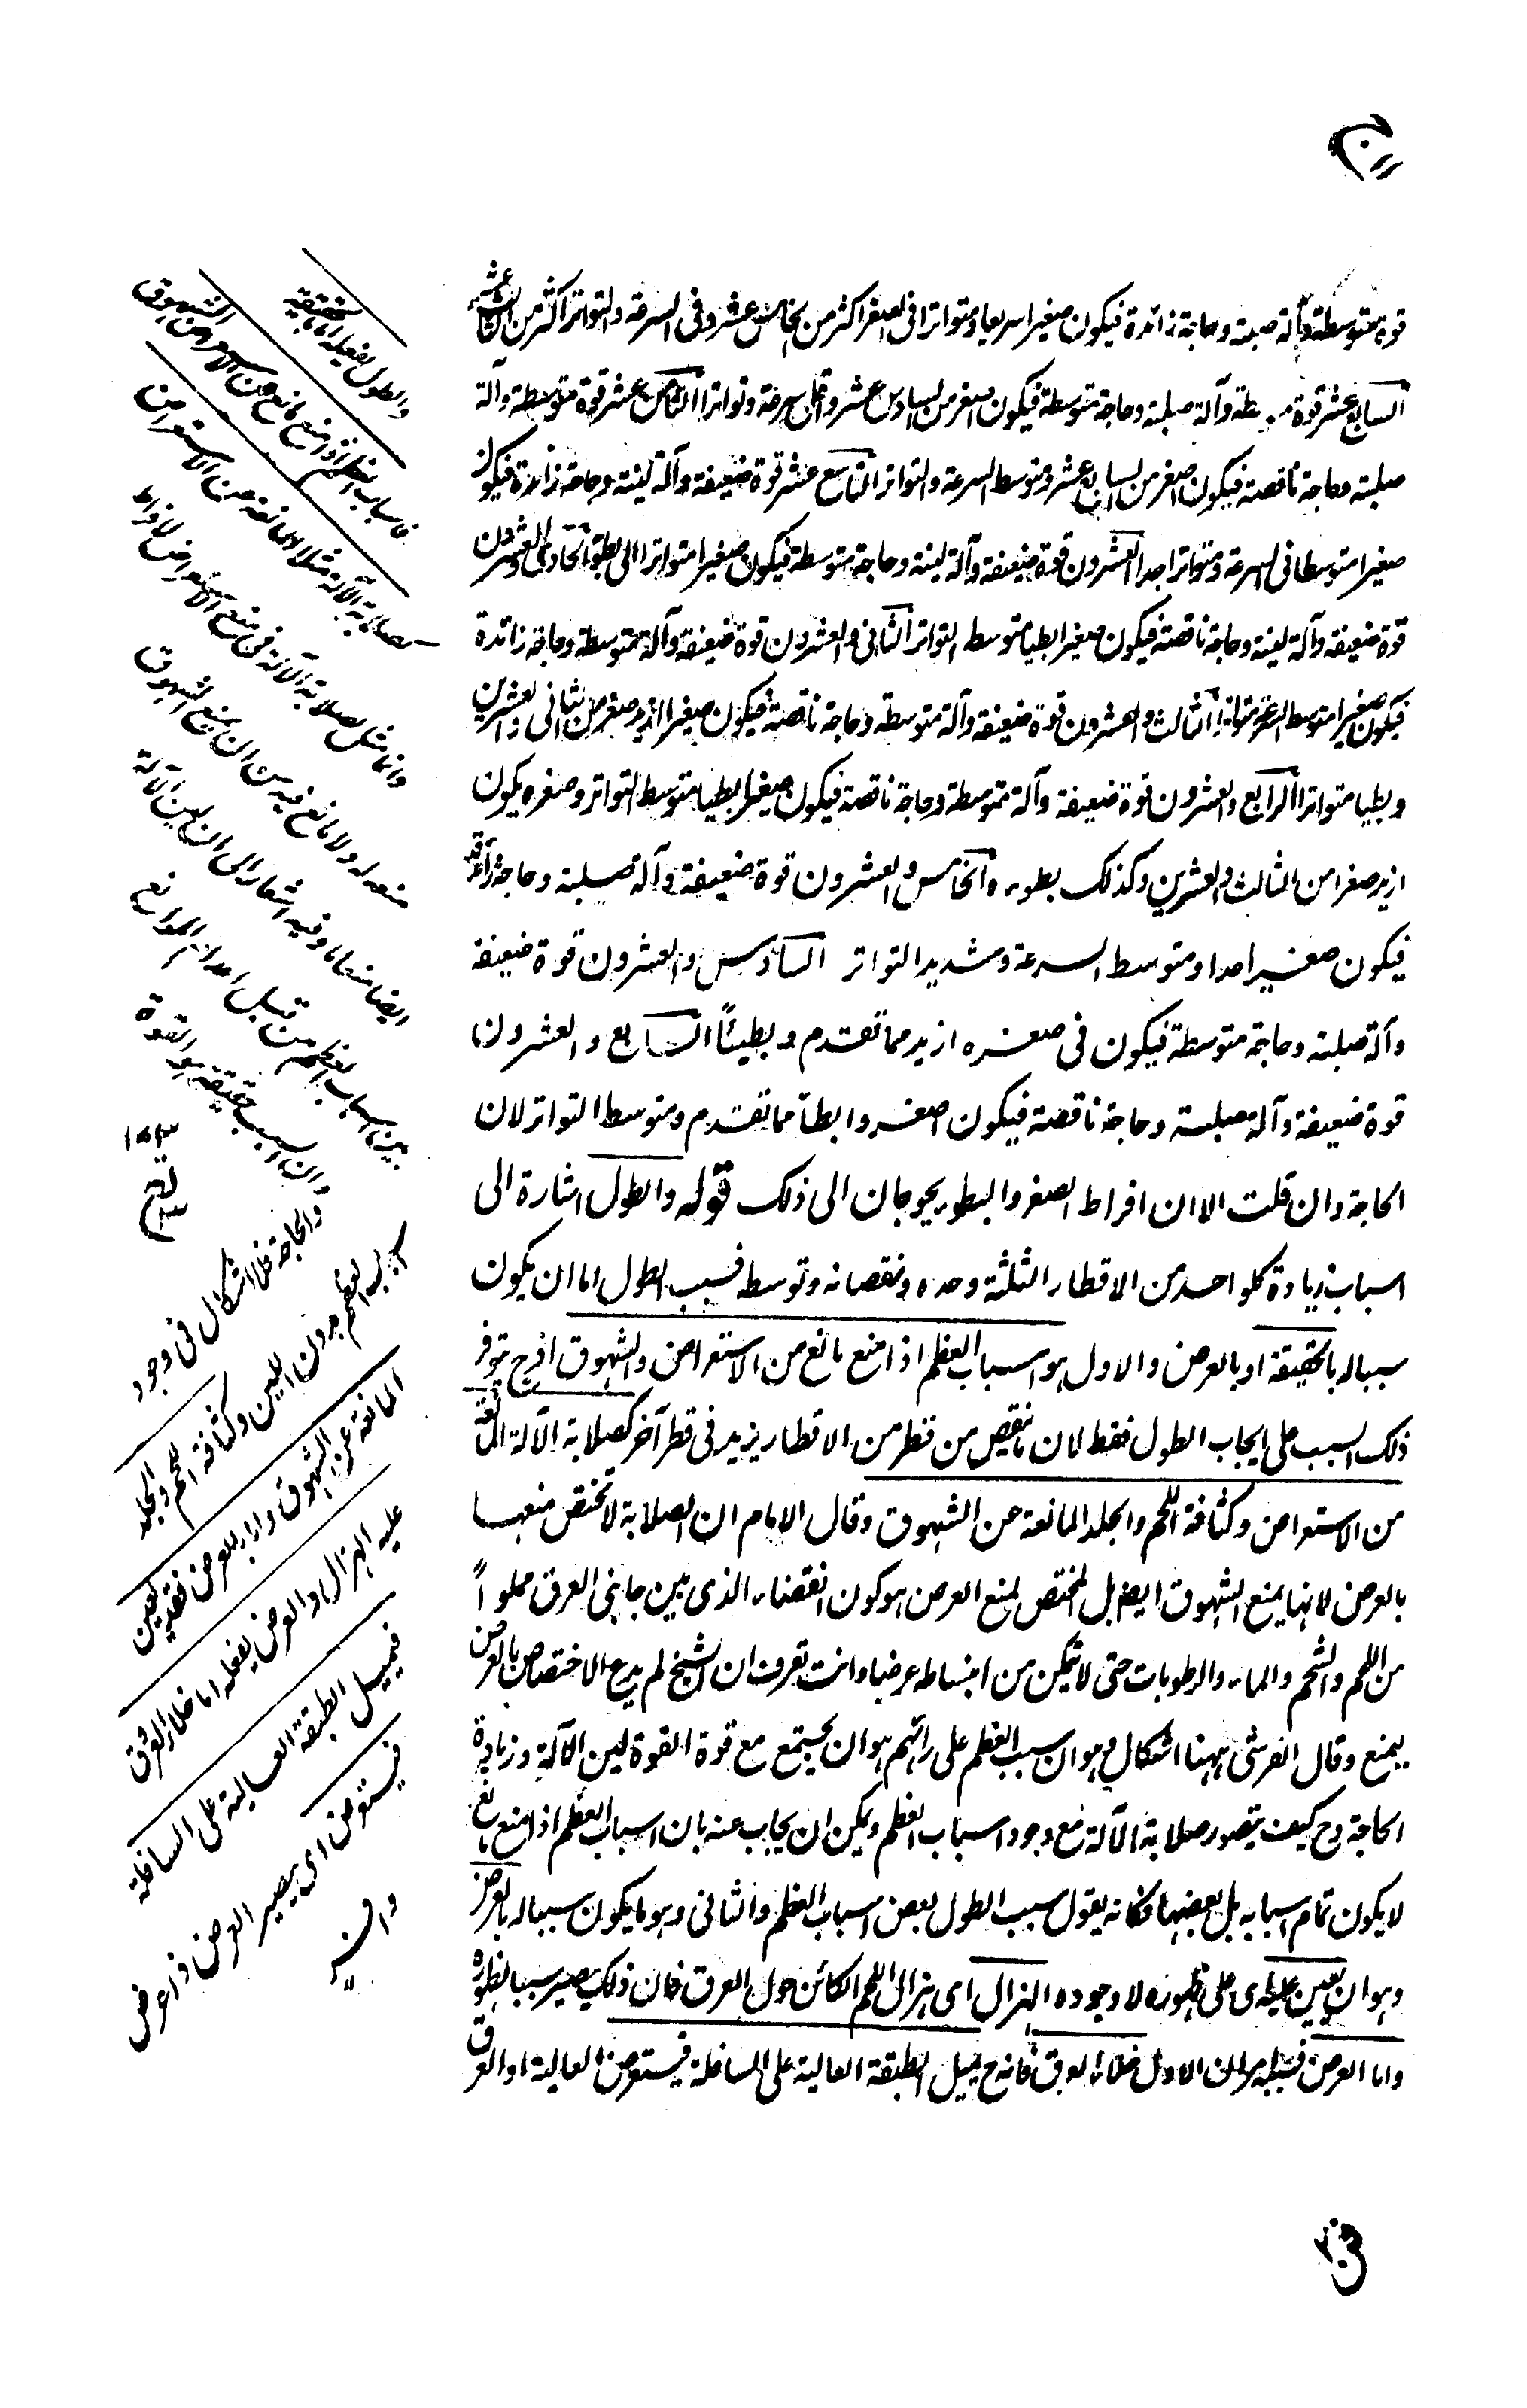 قوة متوسطة وآلة صلبة وحاجة زائدة فيكون صغيرا سريعا ومتواترا فى الصغر اكثر من الخامس عشر وفى السرعة والتواتر اكثر من الثالث عشر
السابع عشر قوة متوسطة وآلة صلبة وحاجة متوسطة فيكون اصغر من السادس عشر واقل سرعة وتواترا الثامن عشر قوة متوسطة وآلة
صلبة وحاجة ناقصة فيكون اصغر من السابع عشر ومتوسط السرعة والتواتر التاسع عشر قوة ضعيفة وآلة لينة وحاجة زائدة فيكون
صغيرا متوسطا فى السرعة ومتواترا جدا العشرون قوة ضعيفة وآلة لينة وحاجة متوسطة فيكون صغيرا متواترا الى البطؤ الحادى والعشرون
قوة ضعيفة وآلة لينة وحاجة ناقصة فيكون صغيرا بطيا متوسط التواتر الثانى والعشرون قوة ضعيفة وآلة متوسطة وحاجة زائدة
فيكون صغيرا متوسط السرعة متواترا الثالث والعشرون قوة ضعيفة وآلة متوسطة وحاجة ناقصة فيكون صغيرا ازيد صغرا من الثانى والعشرين
وبطيا متواترا الرابع والعشرون قوة ضعيفة وآلة متوسطة وحاجة ناقصة فيكون صغيرا بطيا متوسط التواتر وصغره يكون
ازيد صغرا من الثالث والعشرين وكذلك بطوءه والخامس والعشرون قوة ضعيفة وآلة صلبة وحاجة زائدة
فيكون صغيرا جدا ومتوسط السرعة وشديد التواتر السادس والعشرون قوة ضعيفة
وآلة صلبة وحاجة متوسطة فيكون فى صغره ازيد مما تقدم وبطيئًا السابع والعشرون
قوة ضعيفة وآلة صلبة وحاجة ناقصة فيكون اصغر وابطأ مما تقدم ومتوسط التواتر لان
الحاجة وان قلت الا ان افراط الصغر والبطوء يحوجان الى ذلك قوله والطول اشارة الى
اسباب زيادة كلواحد من الاقطار الثلثة وحده ونقصانه وتوسطه فسبب الطول اما ان يكون
سبباله بالحقيقة او بالعرض والاول هو اسباب العظم اذا منع مانع من الاستعراض والشهوق اذ ح يتوفر
ذلك السبب على ايجاب الطول فقط لان ما نقص من قطر من الاقطار يزيد فى قطر آخر كصلابة الآلة المانعة
من الاستعراض وكثافة اللحم والجلد المانعة عن الشهوق وقال الامام ان الصلابة لا تختص منعها
بالعرض لانها يمنع الشهوق ايضا بل المختص لمنع العرض هو كون الفضاء الذى بين جانبى العرق مملوًا
من اللحم والشحم والماء والرطوبات حتى لا تمكن من انبساطه عرضيا وانت تعرف ان الشيخ لم يدع الاختصاص بالعرض
يمنع وقال القرشى ههنا اشكال وهو ان سبب العظم على رائهم هو ان يجتمع مع قوة القوة لين الآلة وزيادة
الحاجة وح كيف يتصور صلابة الآلة مع وجود اسباب العظم ويمكن ان يجاب عنه بان اسباب العظم اذا منع مانع
لا يكون تمام اسبابه بل بعضها فكانه يقول سبب الطول بعض اسباب العظم والثانى وهو ما يكون سبباله بالعرض
وهو ان يعين عليه اى على ظهوره لا وجوده الهزال اى هزال اللحم الكائن حول العرق فان ذلك يصير سببا لظهوره
واما العرض فسببه امران الاول خلاء العرق فانه ح يميل الطبقة العالية على السافلة فيستعرض العالية او العرق
والطول يفعله اما بالحقيقة
فاسباب العظم اذا منع مانع عن الاستعراض الشهوق
كصلابة الآلة مثلا المانعة من الاستعراض
وانما مثل بصلابة الآلة فى منع الاستعراض لافراط
منعه له ولا مانع فيه من ان يمنع الشهوق
ايضا منعا ما وفيه اشعار الى ان لين الآلة
بين اسباب العظم من قبيل اعدام الموانع
وان السبب حقيقة هو القوة
والحاجة فلا اشكال فى وجود
سبب العظم بدون اللين وكثافة اللحم والجلد
المانعة عن الشهوق واما بالعرض فقد يعين
عليه الهزال والعرض يفعله اما خلاء العروق
فيميل الطبقة العالية على السافلة
فيستعرض اى يصير العرض ذا عرض